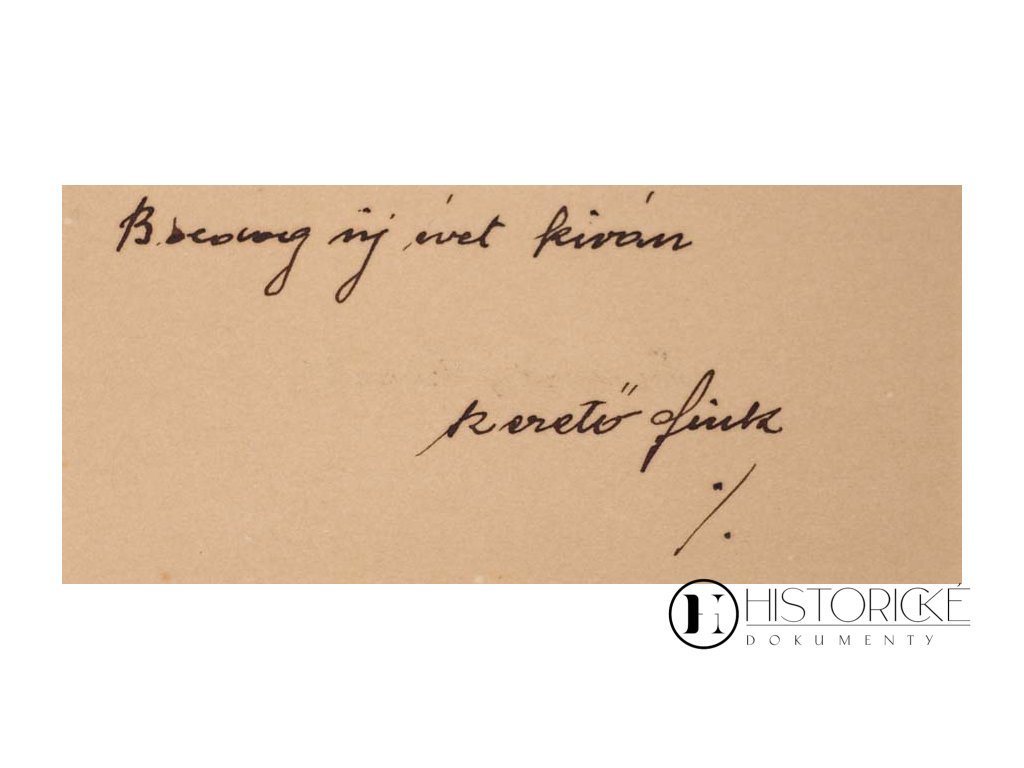 B. ucoug új évet kiván
szerető fiuk
./.
HISTORICKÉ
DOKUMENTY